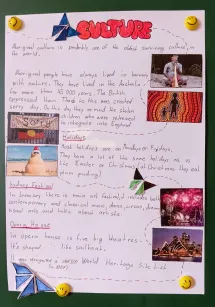 CULTURE
Aboriginal culture is probable one of the oldest surviving culture in
the world.
Aboriginal people have always lived in harmony
with nature. They have lived in the Australia
for more than 40 000 years. The British
oppressed them. There is this was created
sorry day. On this day they remember the stolen
children who were
to integrate into England
Holidays
Most holidays are on Mondays or Fridays.
They have a lot of the same holidays as us
like Easter or Christmas (at Christmas they eat
plum pudding)
Sydney Festival
In January, there is main art festival, it includes both
contemporary and classical music, dance, circus, drama,
visual arts and talks about artists.
Opera House
in opera house is five big theatres.
It's shaped like sailboat.
It was recognized a UNESCO World Heritage Site back